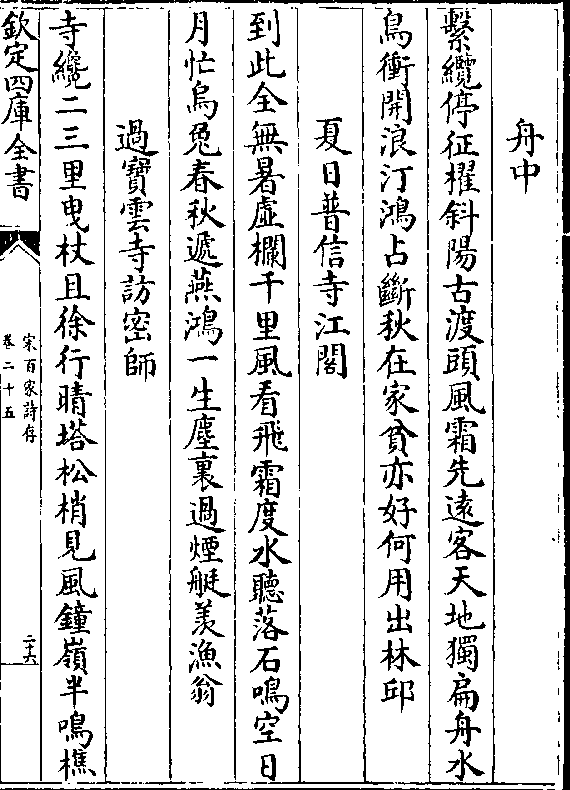 舟中
繫纜停征櫂斜陽古渡頭風霜先遠客天地獨扁舟水
鳥衝開浪汀鴻占斷秋在家貧亦好何用出林邱
夏日普信寺江閣
到此全無暑虛欄千里風看飛霜度水聽落石鳴空日
月忙烏兔春秋遞燕鴻一生塵裏過煙艇羨漁翁
過寶雲寺訪密師
寺纔二三里曳杖且徐行晴塔松梢見風鐘嶺半鳴樵
欽定四庫全書
宋百家詩存
卷二十五
二十六